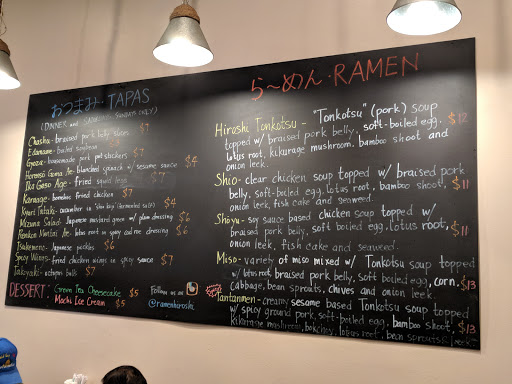 おつまみ・TAPAS
(DINNER and SATURDAYS, SUNDAYS ONLY)
Chashu - braised pork belly slices $7
Edamame - boiled soybean
Gyoza - housemade pork pot stickers $7
Horenso Goma Ae - blanched spinach w/ sesame sauce $4
Ika Geso Age - fried squid legs $7
Karaage - boneless fried chicken $7
Kyuri Tataki - cucumber in $4
Mizuna Salad - Japanese mustard green w/ plum dressing $6
Renkon Mentai Ae - lotus root in spicy cod roe dressing $6
Tsukemono - Japanese pickles $6
Spicy Wings - fried chicken wings in spicy sauce $7
Takoyaki - octopus balls $7
DESSERT: Green Tea Cheesecake $5
Mochi Ice Cream $5
Follow us on
@ramenhiroshi
らーめん・RAMEN
Hiroshi Tonkotsu - "Tonkotsu" (pork) soup
topped w/ braised pork belly, soft-boiled egg, $12
lotus root, kikurage mushroom, bamboo shoot and
onion leek.
Shio - clear chicken soup topped w/ braised pork
belly, soft-boiled egg, lotus root, bamboo shoot, $11
onion leek, fish cake and seaweed.
Shoyu - soy sauce based chicken soup topped w/
braised pork belly, soft boiled egg, lotus root, $11
onion leek, fish cake and seaweed.
Miso - variety of miso mixed w/ Tonkotsu soup topped
w/ lotus root, braised pork belly, soft boiled egg, corn, $13
cabbage, bean sprouts, chives and onion leek.
Tantanmen - creamy sesame based Tonkotsu soup topped
w/ spicy ground pork, soft-boiled egg, bamboo shoot, $13
kikurage mushroom, bok choy, lotus root, bean sprouts, leek